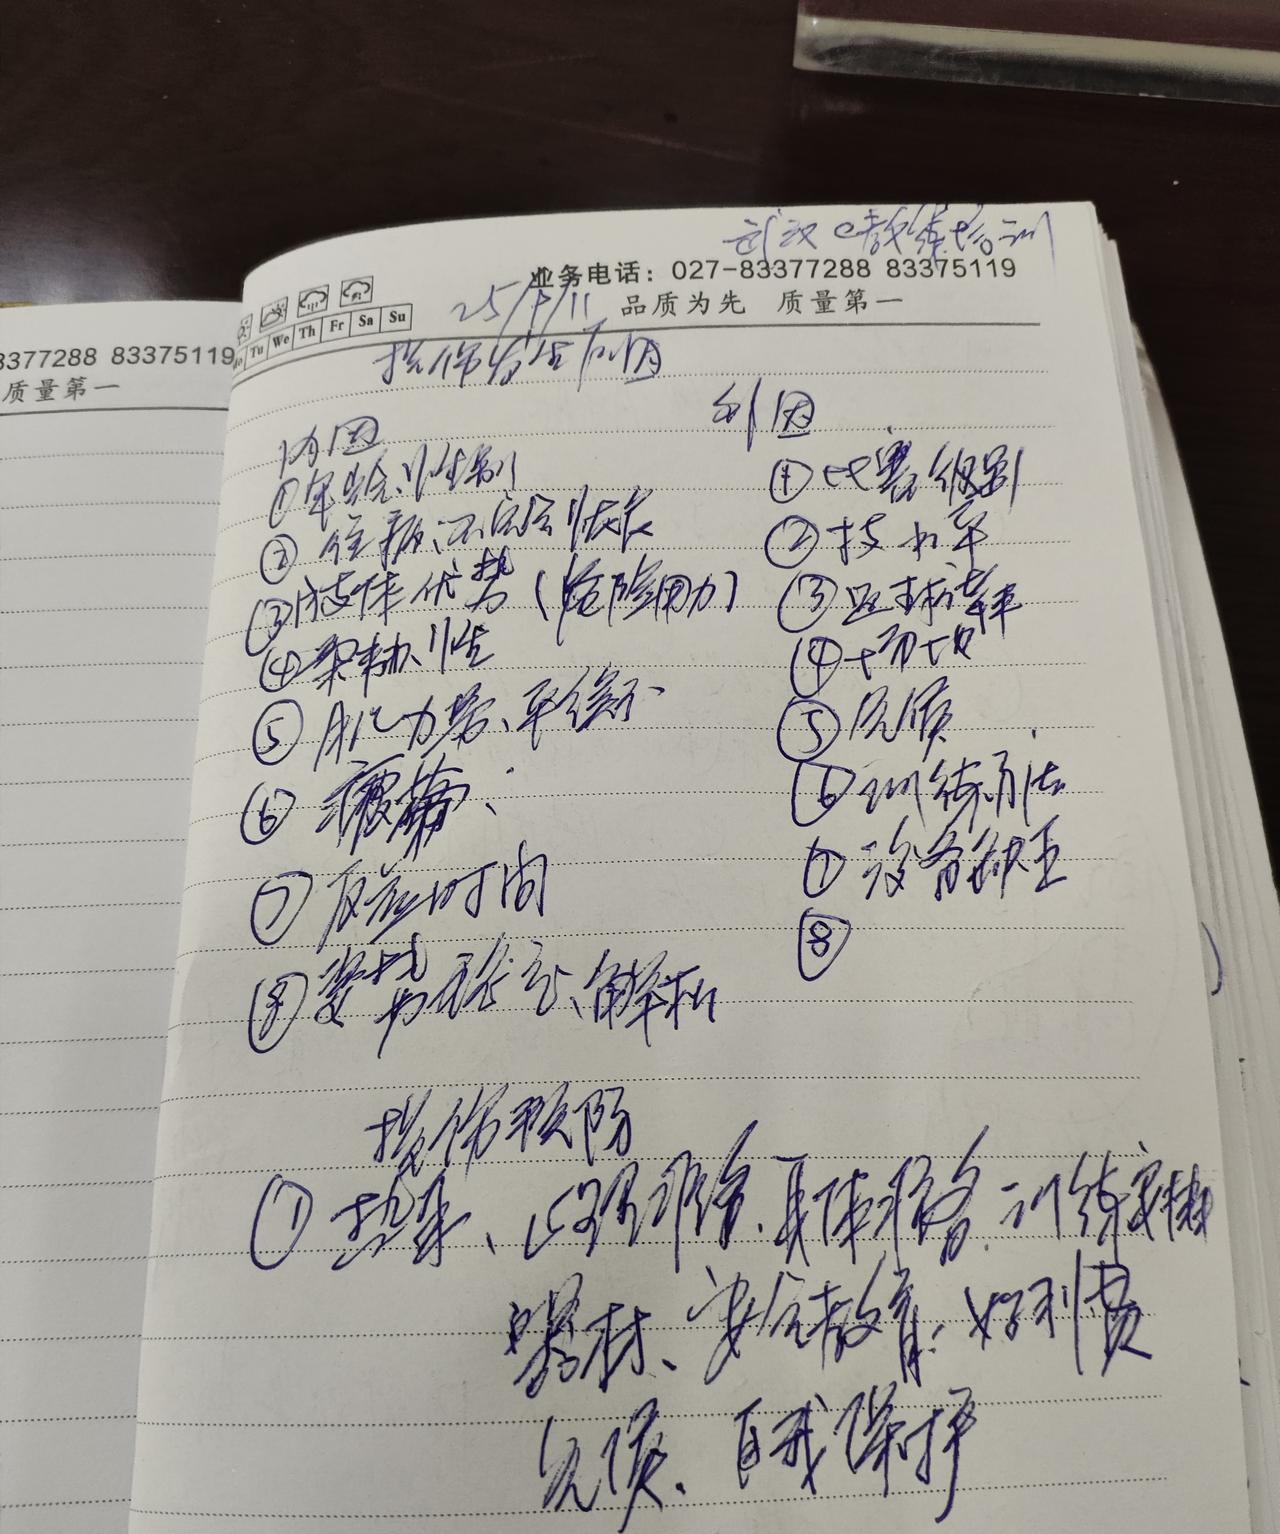 武汉C教练培训
业务电话：027-83377288 83375119
25/ /11 品质为先 质量第一
Tu We Th Fr Sa Su
3377288 83375119
质量第一
损伤发生原因
内因
①年龄、性别
② 病、不完全恢复
③肢体优势（危险用力）
④柔韧性
⑤肌力弱、平衡不
⑥疲劳、
⑦反应时间
⑧ 稳定、解析
外因
①比赛级别
②技术
③
④场地
⑤气候
⑥训练方法
⑦设备缺乏
⑧
损伤预防
①热身、心理准备、具体准备、训练安排
器材、安全教育、好习惯
气候、自我保护